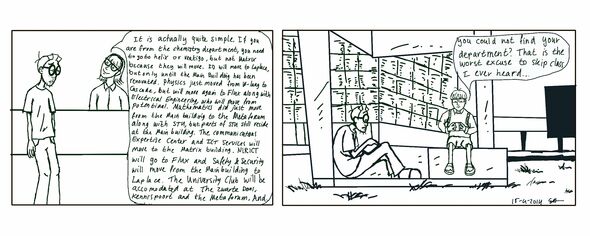 It is actually quite simple. If you
are from the chemistry department, you need
to go to helix or vertigo, but not Matrix
because they will move. IO will move to Laplace,
but only until the Main Building has been
renovated. Physics just moved from N-laag to
Cascade, but will move again to Flux along with
Electrical Engineering who will move from
Potential. Mathematics did just move
from the Main building to the Metaforum
along with STU, but parts of STU still reside
at the Main building. The communications
Expertise Center and ICT services will
move to the Matrix building. NIRICT
will go to Flux and Safety & Security
will move from the Main building to
Laplace. The University Club will be
accomodated at The Zwarte Doos,
Kennispoort and the Metaforum. And
you could not find your
department? That is the
worst excuse to skip class
I ever heard...